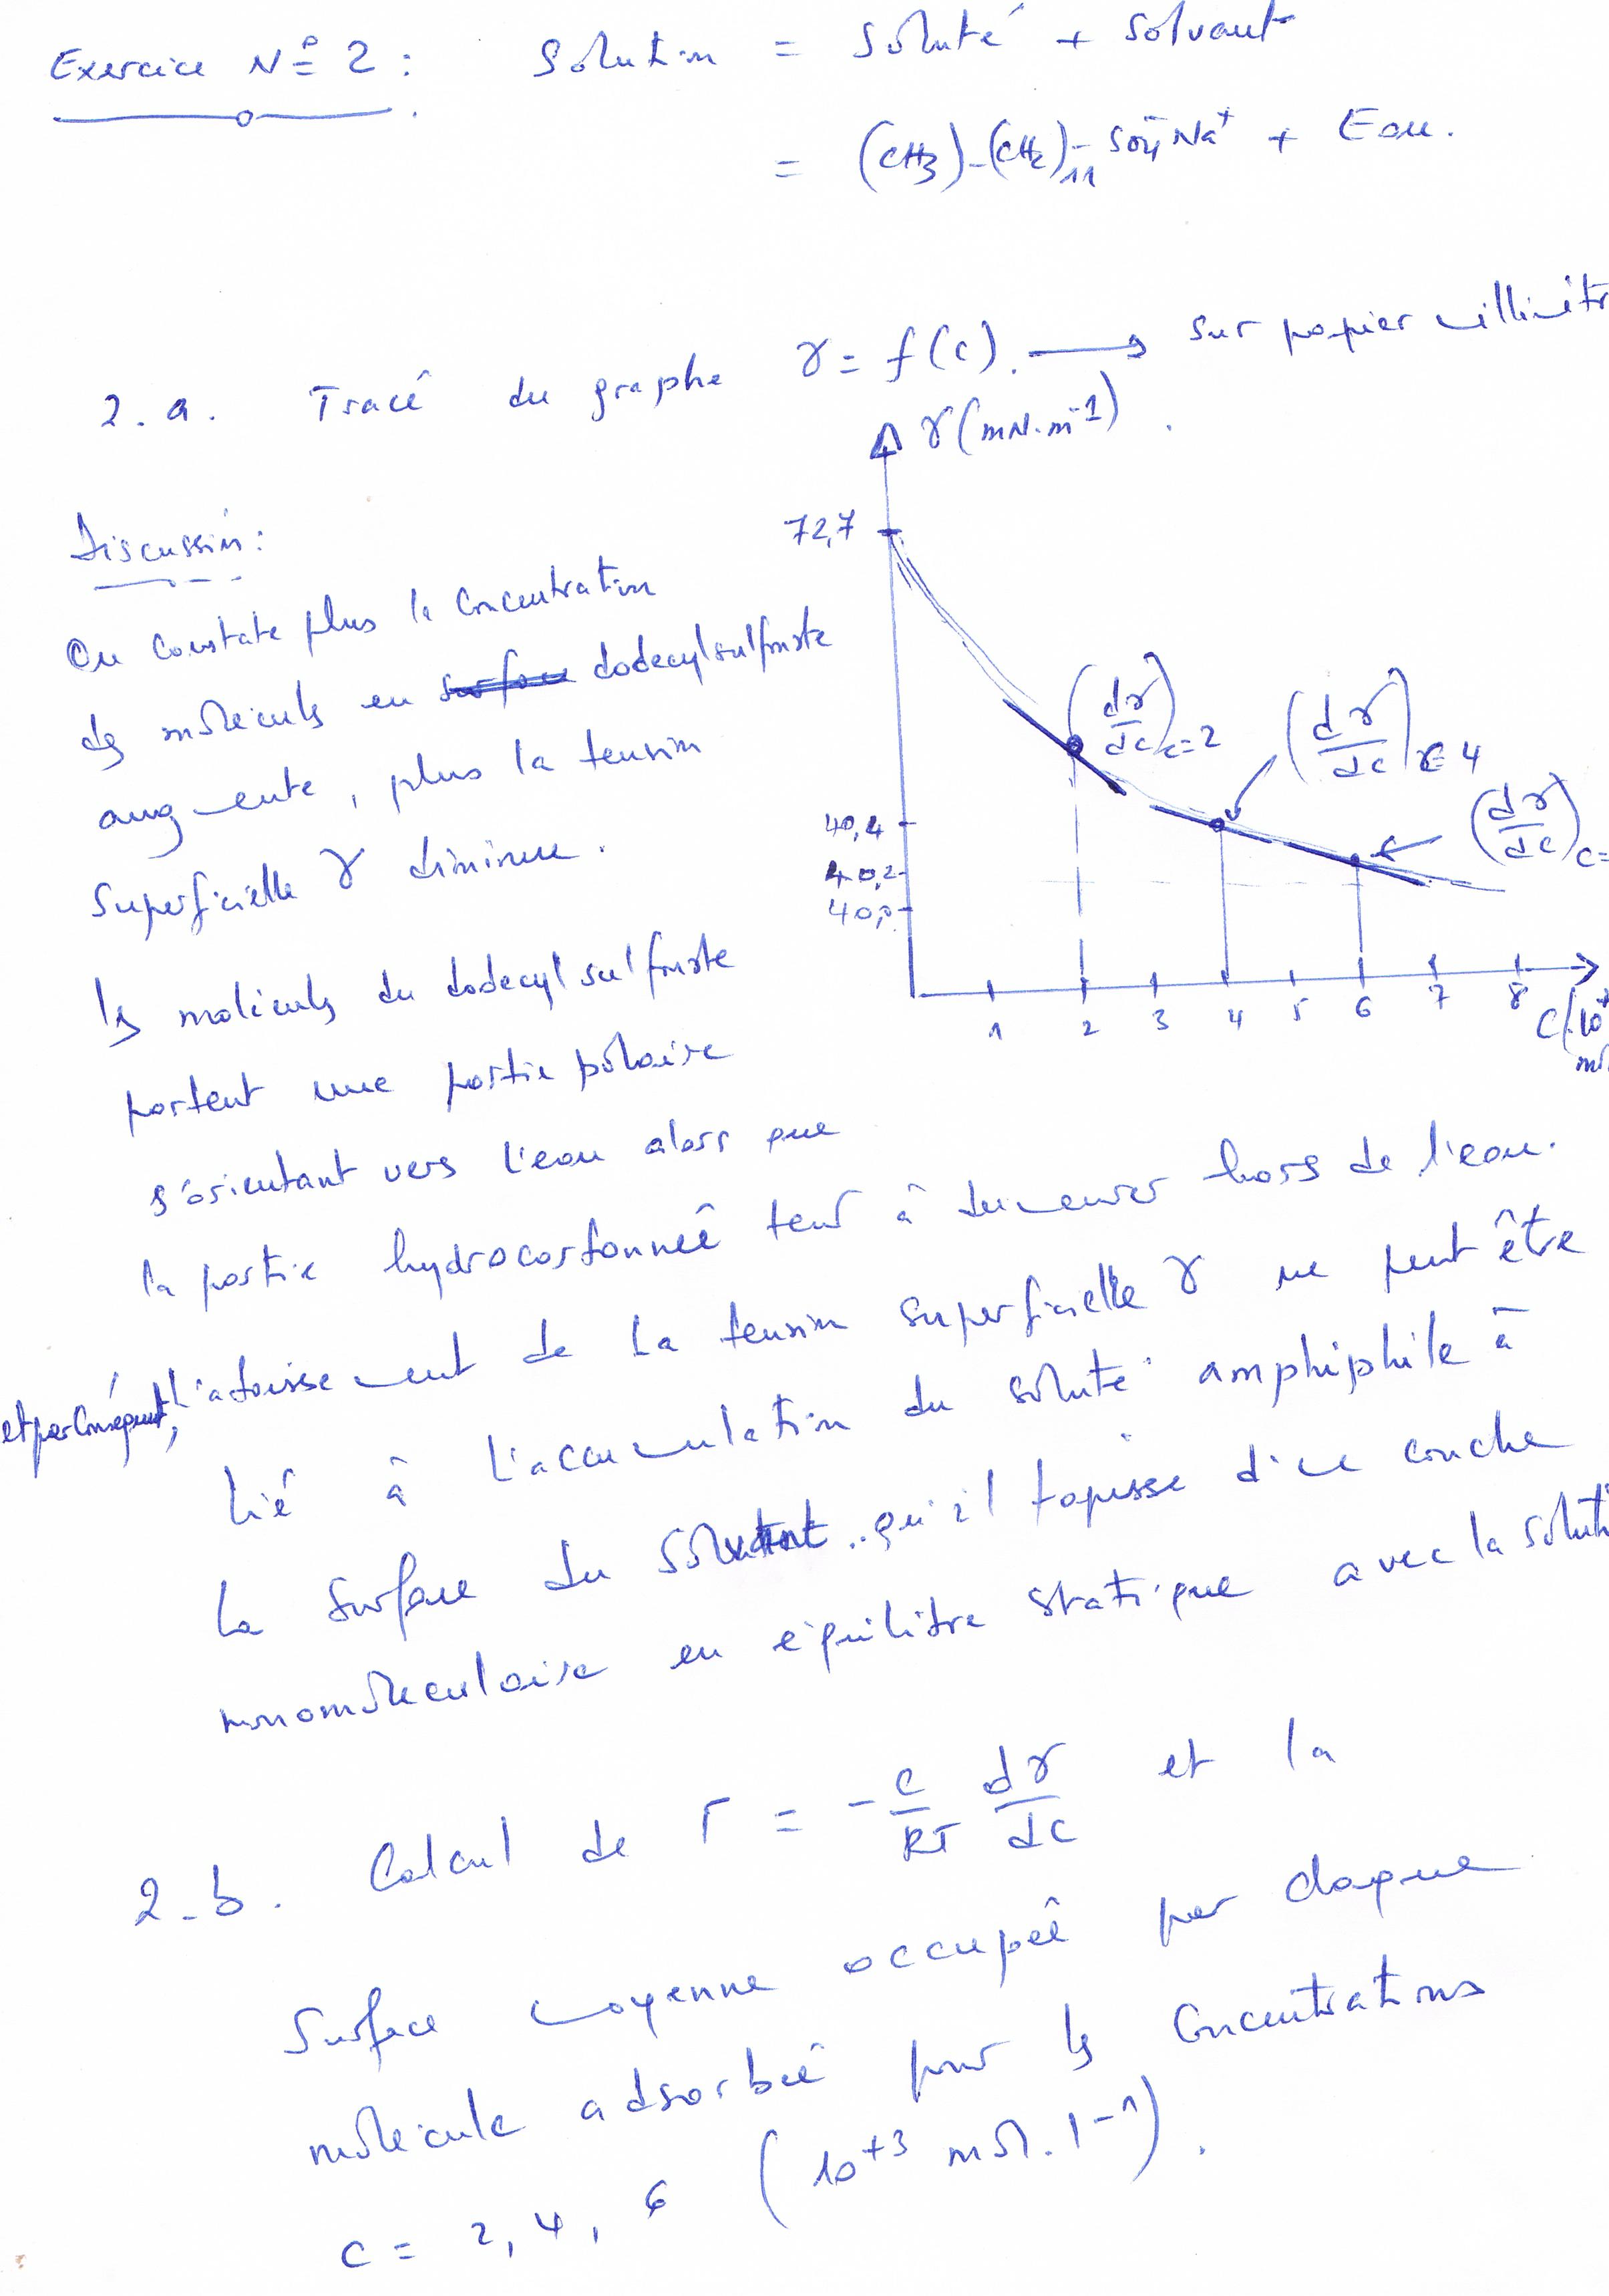 Exercice N° 2 : Solution = Soluté + Solvant
= (CH3)-(CH2)11-SO4⁻Na⁺ + Eau.
2.a. Tracé du graphe γ = f(c). → sur papier millimétr
γ(mN.m⁻¹)
72,7
40,4
40,2
40,0
(dγ/dc)c=2
(dγ/dc)c=4
(dγ/dc)c=
1 2 3 4 5 6 7 8
C(.10⁺
Discussion :
On constate plus la concentration
des molécules en dodecylsulfonate
augmente, plus la tension
Superficielle γ diminue.
les molécules du dodecylsulfonate
portent une partie polaire
s'orientant vers l'eau alors que
la partie hydrocarbonnée tend à demeurer hors de l'eau.
et par conséquent, l'abaissement de la tension superficielle γ ne peut être
lié à l'accumulation du soluté amphiphile à
la surface du solvant qu'il tapisse d'une couche
monomoléculaire en équilibre statique avec la soluti
2-b. Calcul de Γ = - c/RT dγ/dc et la
Surface moyenne occupée par chaque
molécule adsorbée pour les concentrations
c = 2, 4, 6 (10⁺³ mol.l⁻¹).